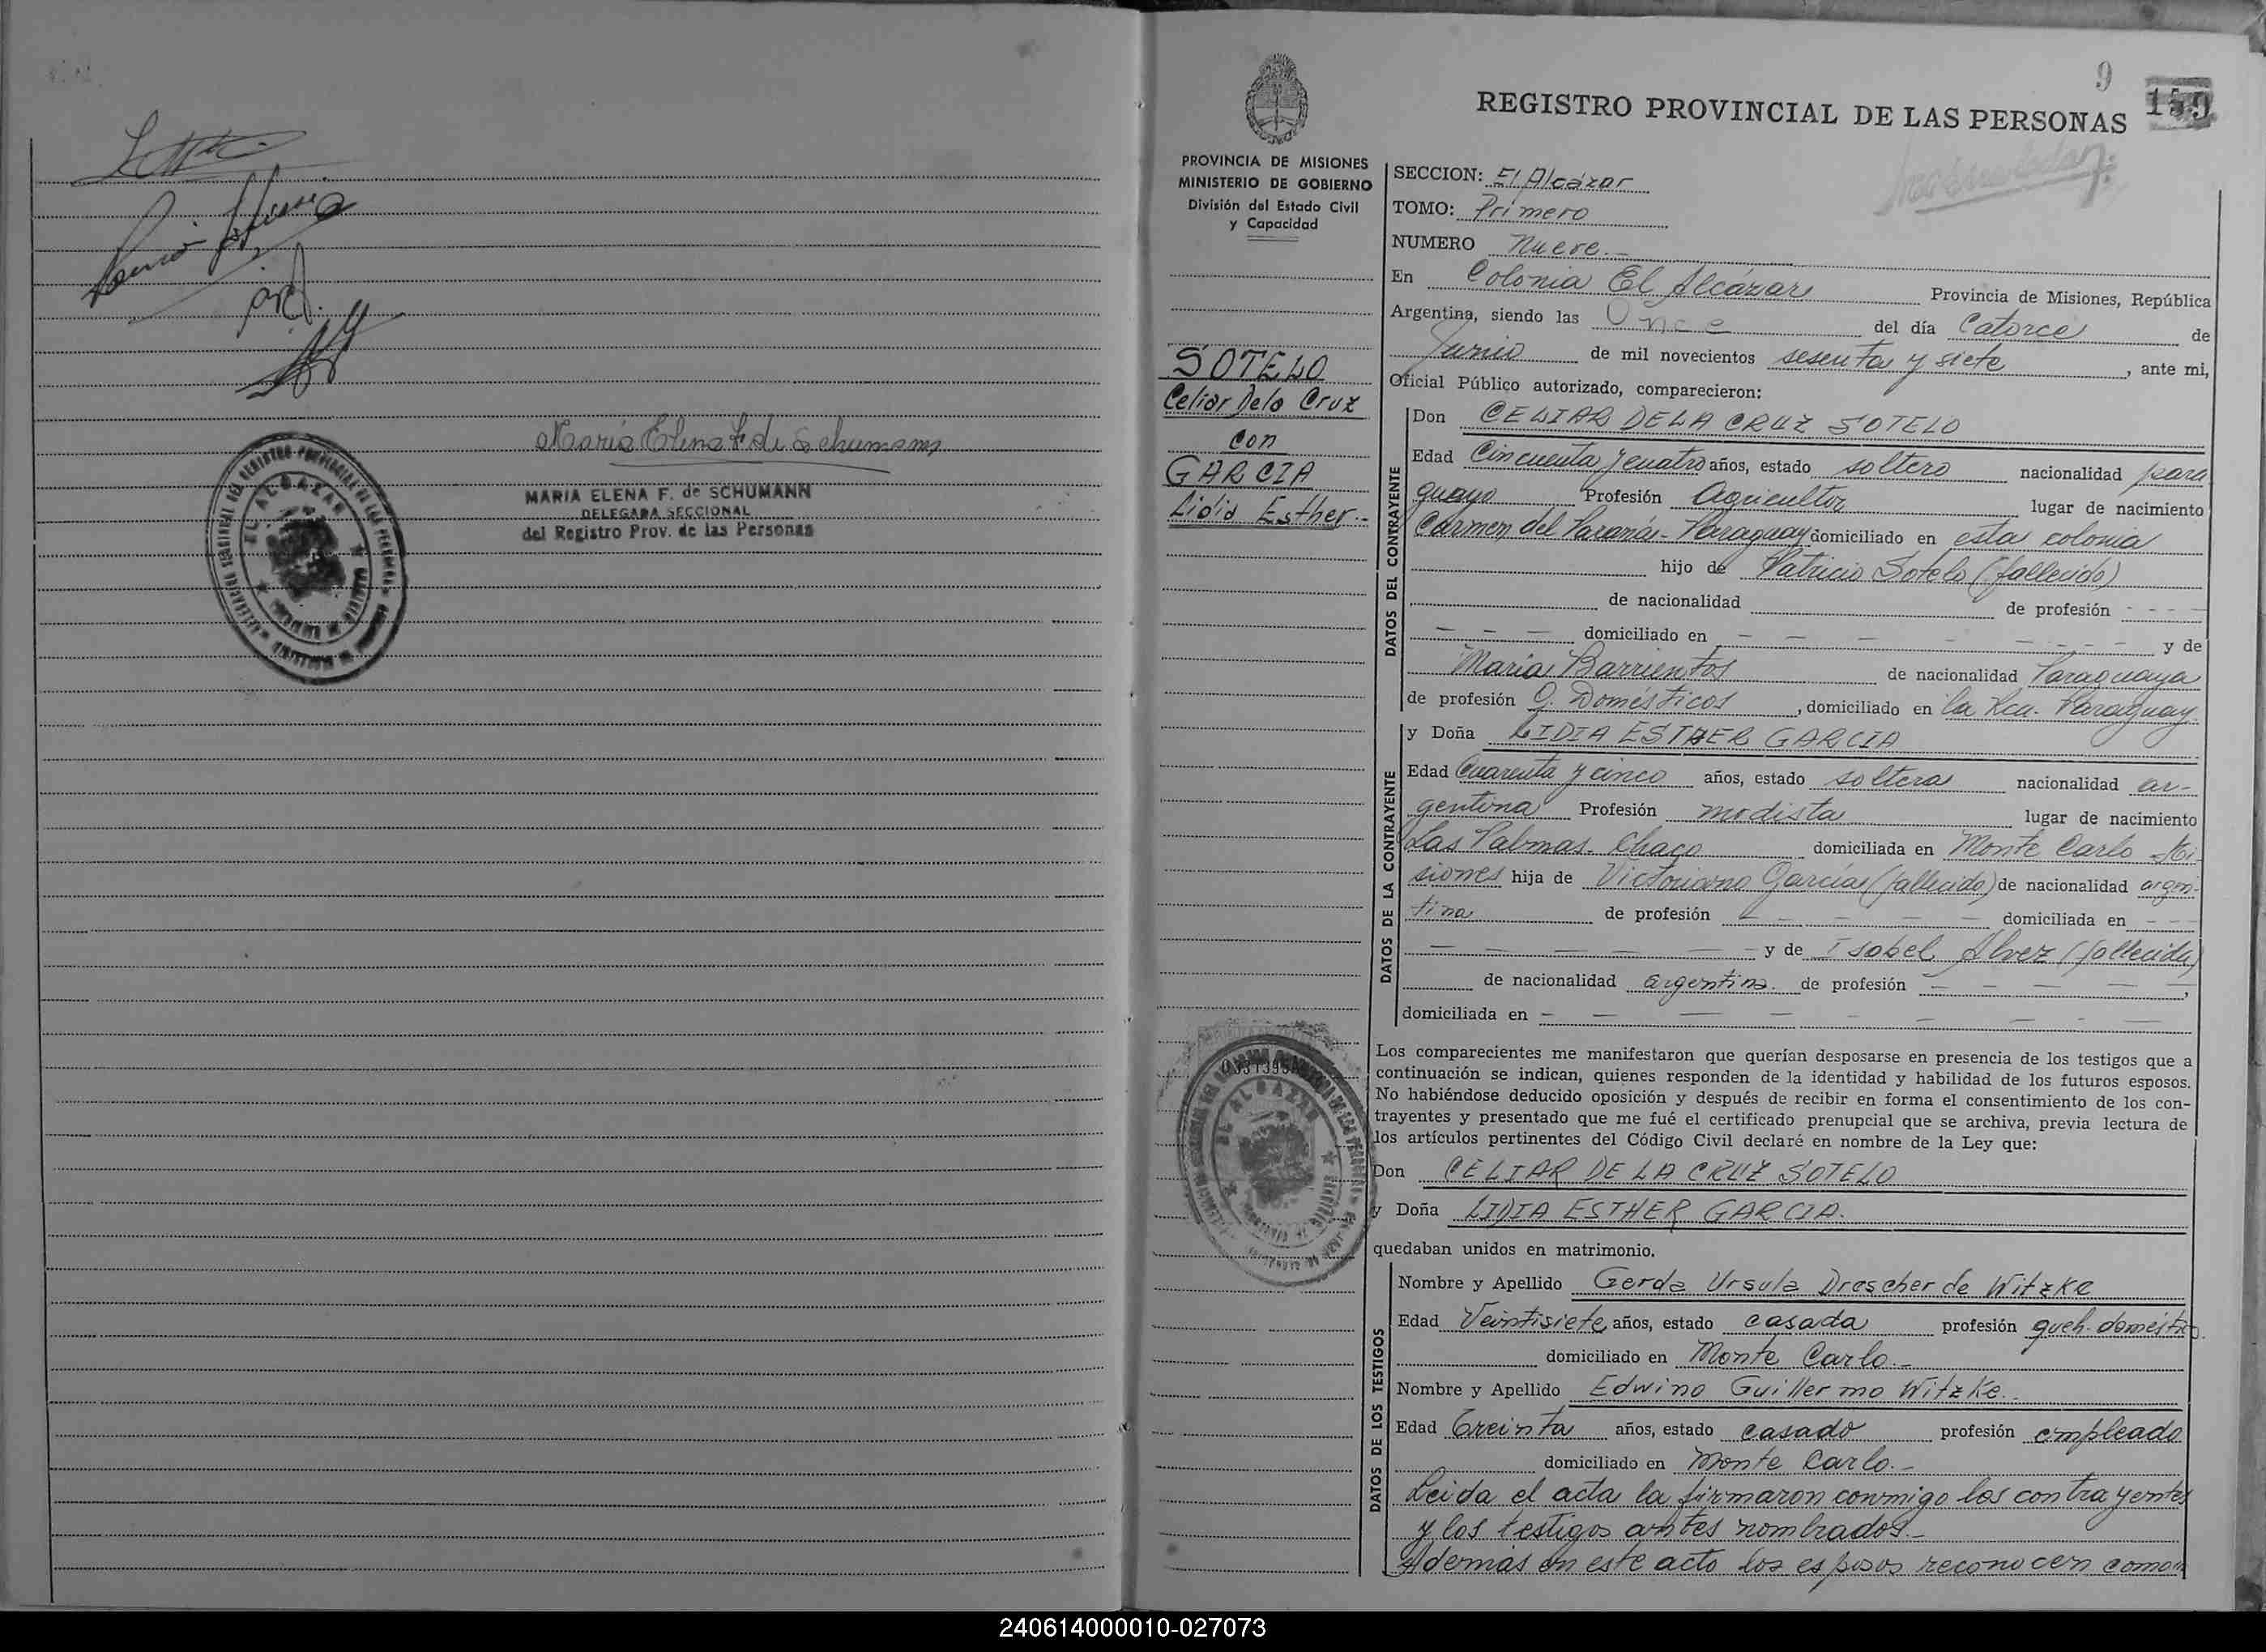 Maria Elena F. de Schumann
MARIA ELENA F. de SCHUMANN
DELEGADA SECCIONAL
del Registro Prov. de las Personas
EL ALCAZAR
9
159
REGISTRO PROVINCIAL DE LAS PERSONAS
PROVINCIA DE MISIONES
MINISTERIO DE GOBIERNO
División del Estado Civil
y Capacidad
SOTELO
Celiar Dela Cruz
con
GARCIA
Lidia Esther.-
EL ALCAZAR
SECCION: El Alcázar
TOMO: Primero
NUMERO Nueve.-
En Colonia El Alcázar Provincia de Misiones, República
Argentina, siendo las Once del día Catorce de
Junio de mil novecientos sesenta y siete, ante mi,
Oficial Público autorizado, comparecieron:
DATOS DEL CONTRAYENTE
Don CELIAR DE LA CRUZ SOTELO
Edad Cincuenta y cuatro años, estado soltero nacionalidad para
guayo Profesión Agricultor lugar de nacimiento
Carmen del Paraná - Paraguay domiciliado en esta colonia
hijo de Patricio Sotelo (fallecido)
de nacionalidad de profesión - - - -
- - - domiciliado en - - - - - - - y de
Maria Barrientos de nacionalidad Paraguaya
de profesión Q. Domésticos, domiciliado en la Rca. Paraguay.
DATOS DE LA CONTRAYENTE
y Doña LIDIA ESTHER GARCIA
Edad Cuarenta y cinco años, estado soltera nacionalidad ar-
gentina Profesión modista lugar de nacimiento
Las Palmas. Chaco domiciliada en Monte Carlo Mi-
siones hija de Victoriano García (fallecido) de nacionalidad argen-
tina de profesión - - - - - domiciliada en - - -
- - - - - - y de Isabel Alvez (fallecida)
de nacionalidad argentina. de profesión - - - - -,
domiciliada en - - - - - - - - -
Los comparecientes me manifestaron que querían desposarse en presencia de los testigos que a
continuación se indican, quienes responden de la identidad y habilidad de los futuros esposos.
No habiéndose deducido oposición y después de recibir en forma el consentimiento de los con-
trayentes y presentado que me fué el certificado prenupcial que se archiva, previa lectura de
los artículos pertinentes del Código Civil declaré en nombre de la Ley que:
Don CELIAR DE LA CRUZ SOTELO
y Doña LIDIA ESTHER GARCIA.
quedaban unidos en matrimonio.
DATOS DE LOS TESTIGOS
Nombre y Apellido Gerda Ursula Drescher de Witzke
Edad Veintisiete años, estado casada profesión queh. doméstic.
domiciliado en Monte Carlo.-
Nombre y Apellido Edwino Guillermo Witzke.
Edad Treinta años, estado casado profesión empleado
domiciliado en Monte Carlo.-
Leida el acta la firmaron conmigo los contrayentes
y los testigos antes nombrados.-
Además en este acto los esposos reconocen como
240614000010-027073